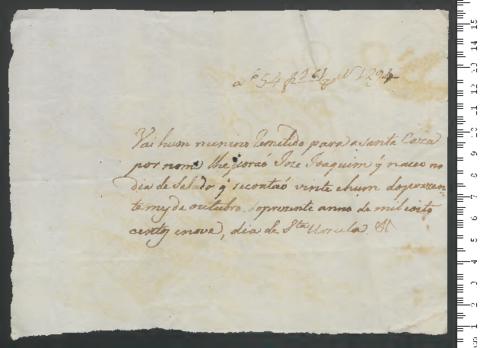 a f 54 nº 1294
Vai hum menino Remetido para a Santa Caza
por nome lhe porao Joze Joaquim q̃ naceo no
dia de Sabado q̃ secontaõ vinte ehum doprezen
te mes de outubro, doprezente anno de mil eoito
centos enove, dia de Sta Ursula